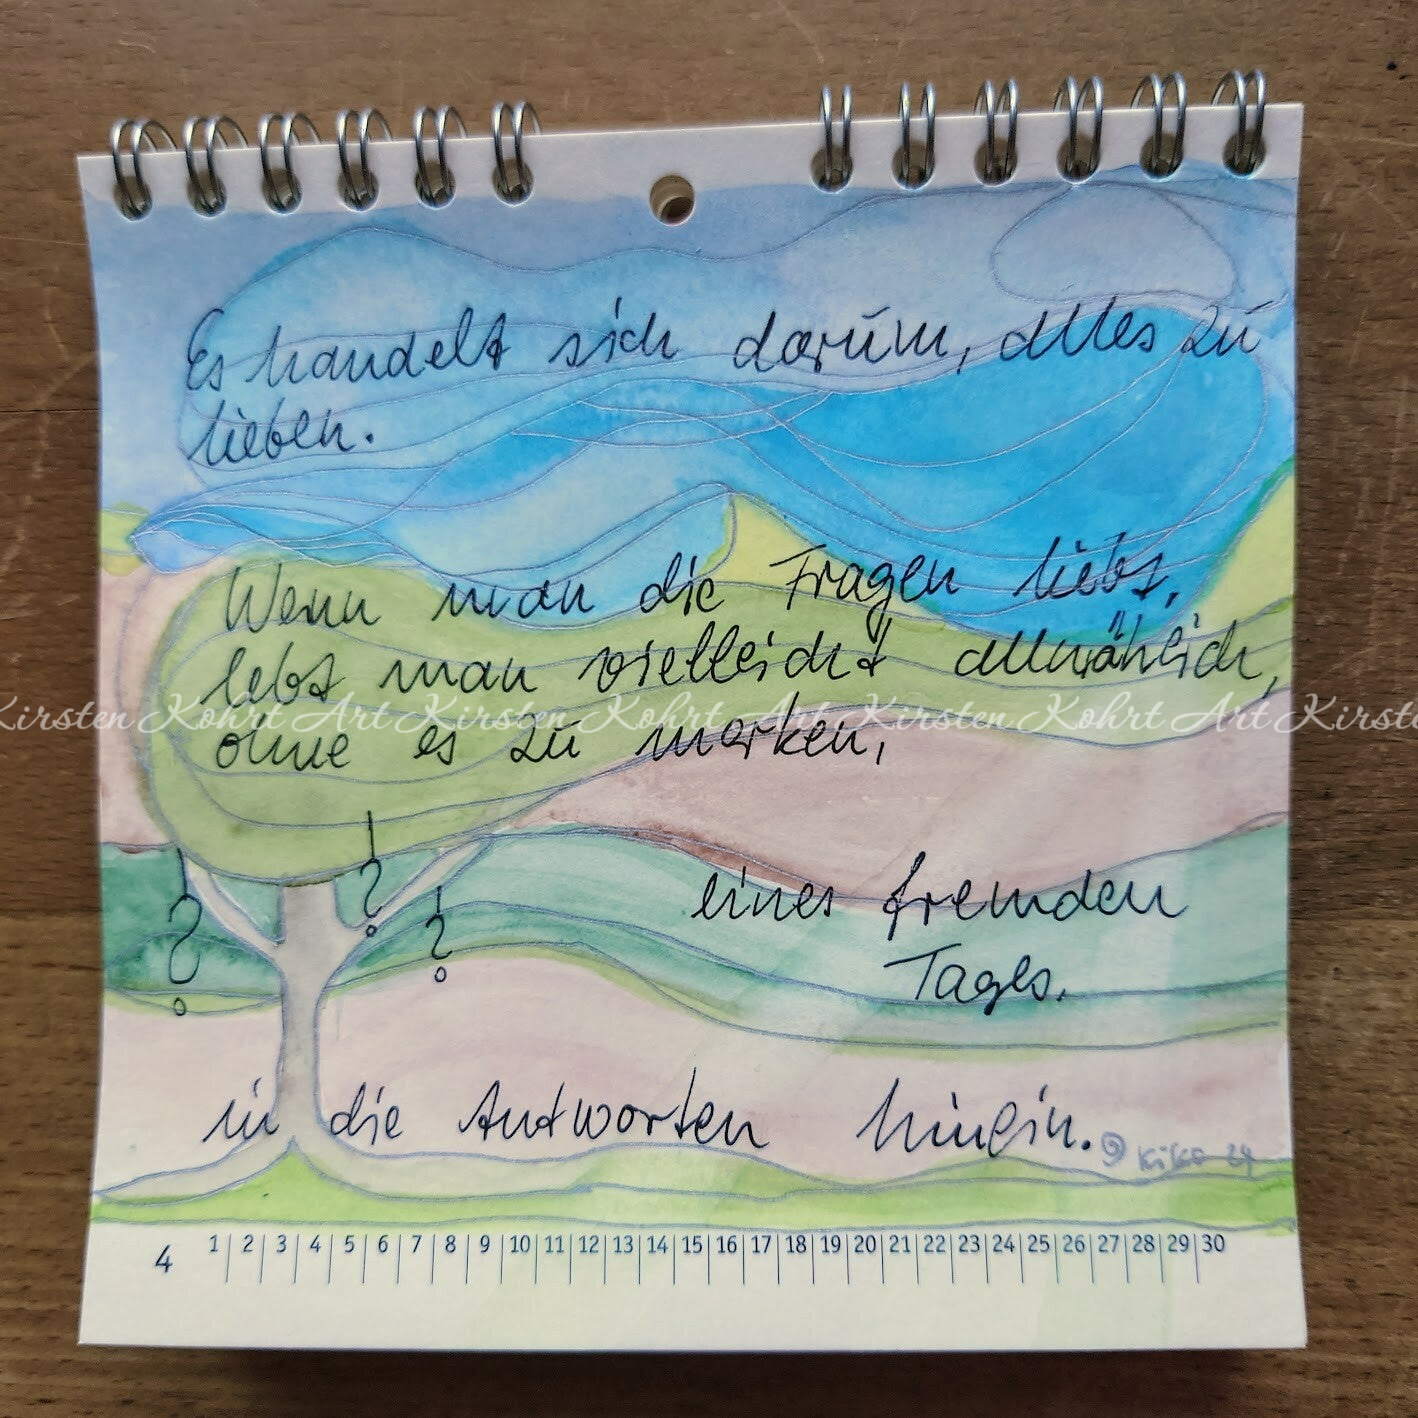 Es handelt sich darum, alles zu
lieben.
Wenn man die Fragen liebt,
lebt man vielleicht allmählich,
Kirsten Kohrt Art Kirsten Kohrt Art Kirsten Kohrt Art Kirsten
ohne es zu merken,
eines fremden
Tages.
in die Antworten hinein.
Kiko 24
4 1 2 3 4 5 6 7 8 9 10 11 12 13 14 15 16 17 18 19 20 21 22 23 24 25 26 27 28 29 30